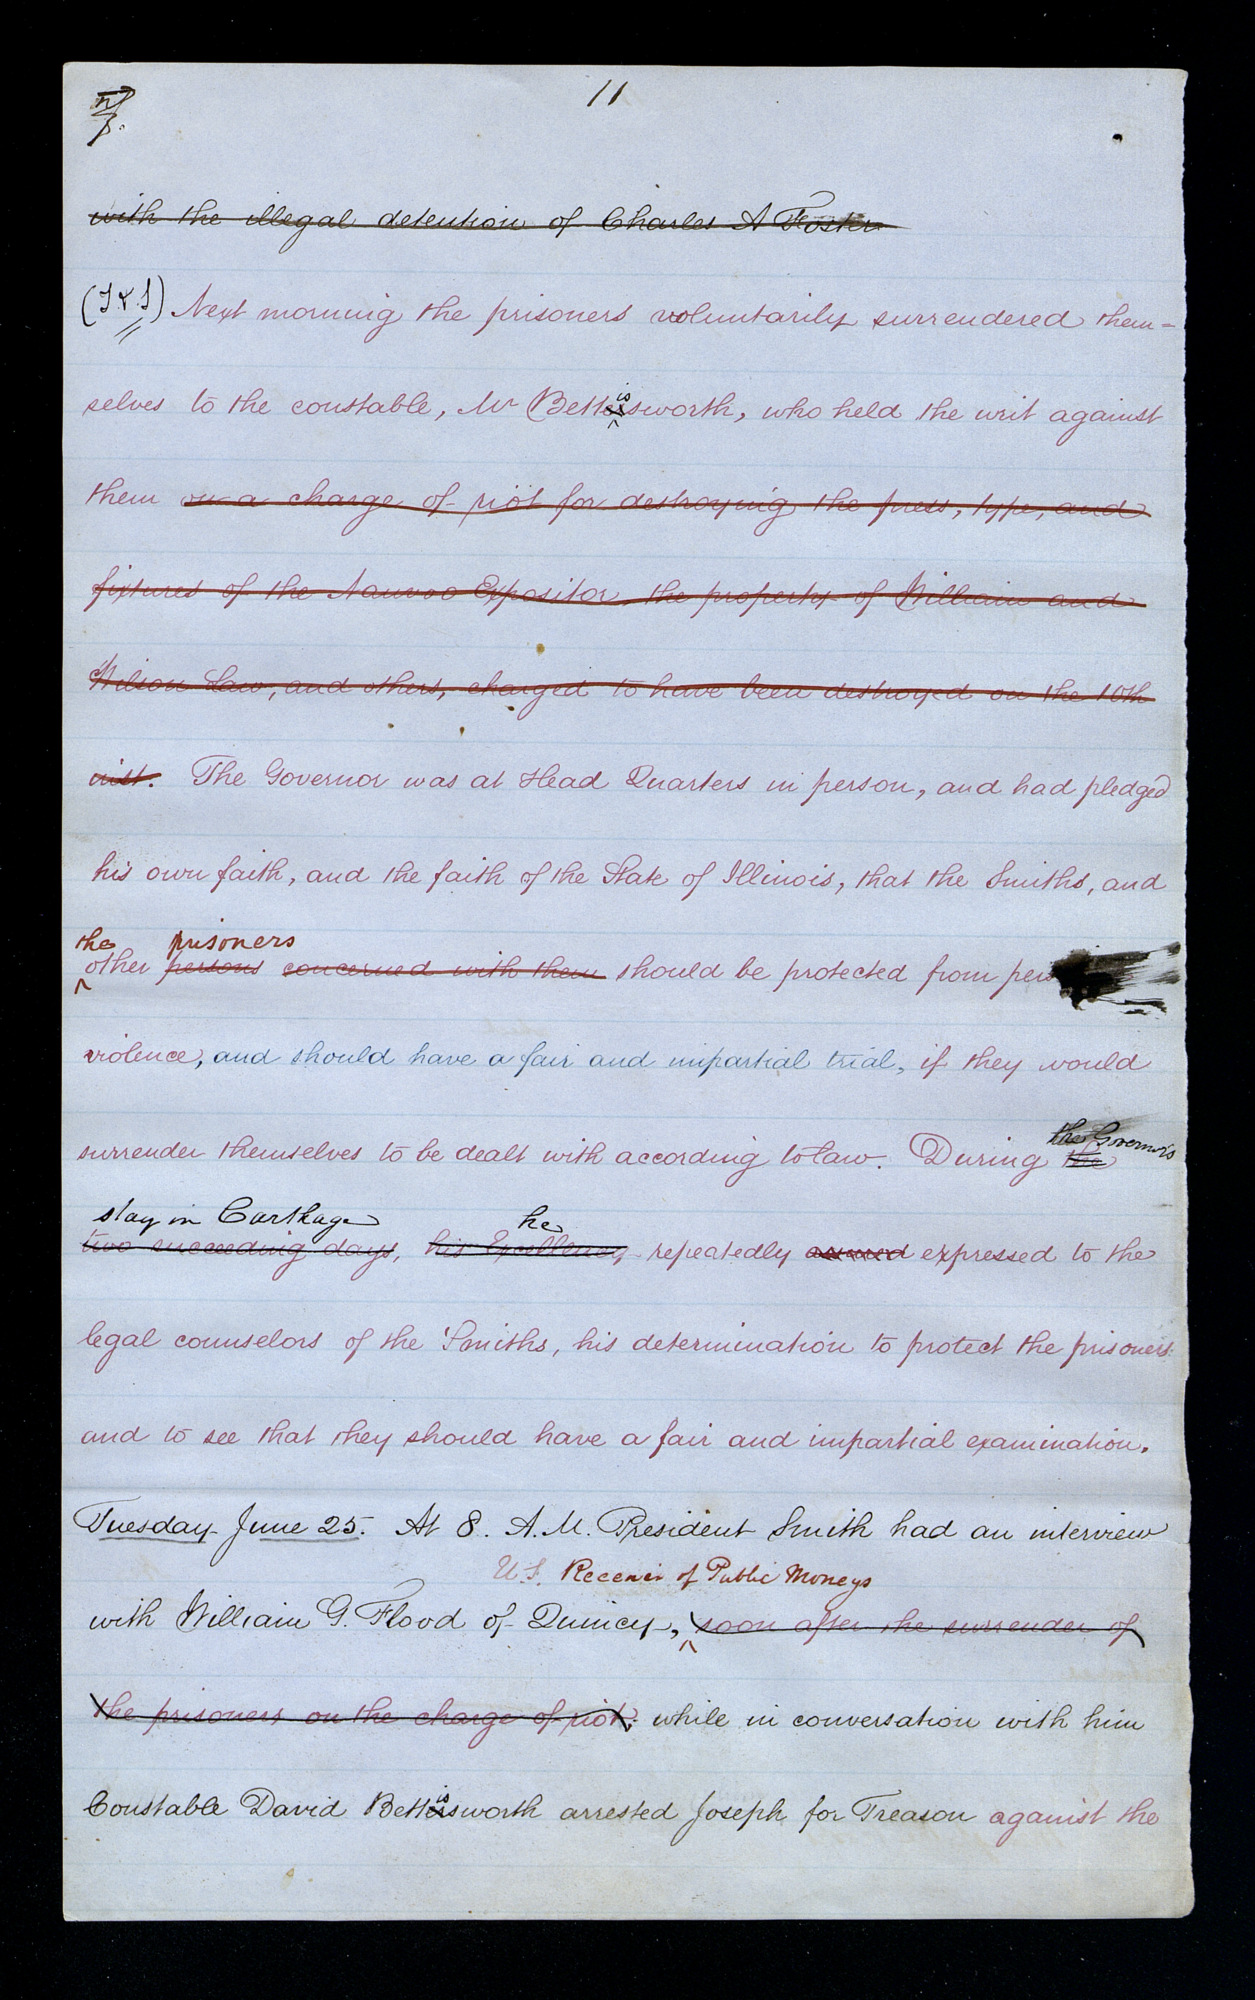 11
with the illegal detention of Charles A Foster
Next morning the prisoners voluntarily surrendered them-
is
selves to the constable, Mr Bettersworth, who held the writ against
them on a charge of riot for destroying the press, type, and
fixtures of the Nauvoo Expositor, the property of William and
Wilson Law, and others, charged to have been destroyed on the 10th
inst. The Governor was at Head Quarters in person, and had pledged
his own faith, and the faith of the State of Illinois, that the Smiths, and
the prisoners
other persons concerned with them should be protected from
violence, and should have a fair and impartial trial, if they would
the Governor's
surrender themselves to be dealt with according to law. During the
stay in Carthage he
two succeeding days, his Excellency repeatedly expressed to the
legal counselors of the Smiths, his determination to protect the prisoners
and to see that they should have a fair and impartial examination.
Tuesday June 25. At 8. A.M. President Smith had an interview
U.S. Receiver of Public Moneys
with William G. Flood of Quincy, soon after the surrender of
the prisoners on the charge of riot: while in conversation with him
is
Constable David Bettersworth arrested Joseph for Treason against the